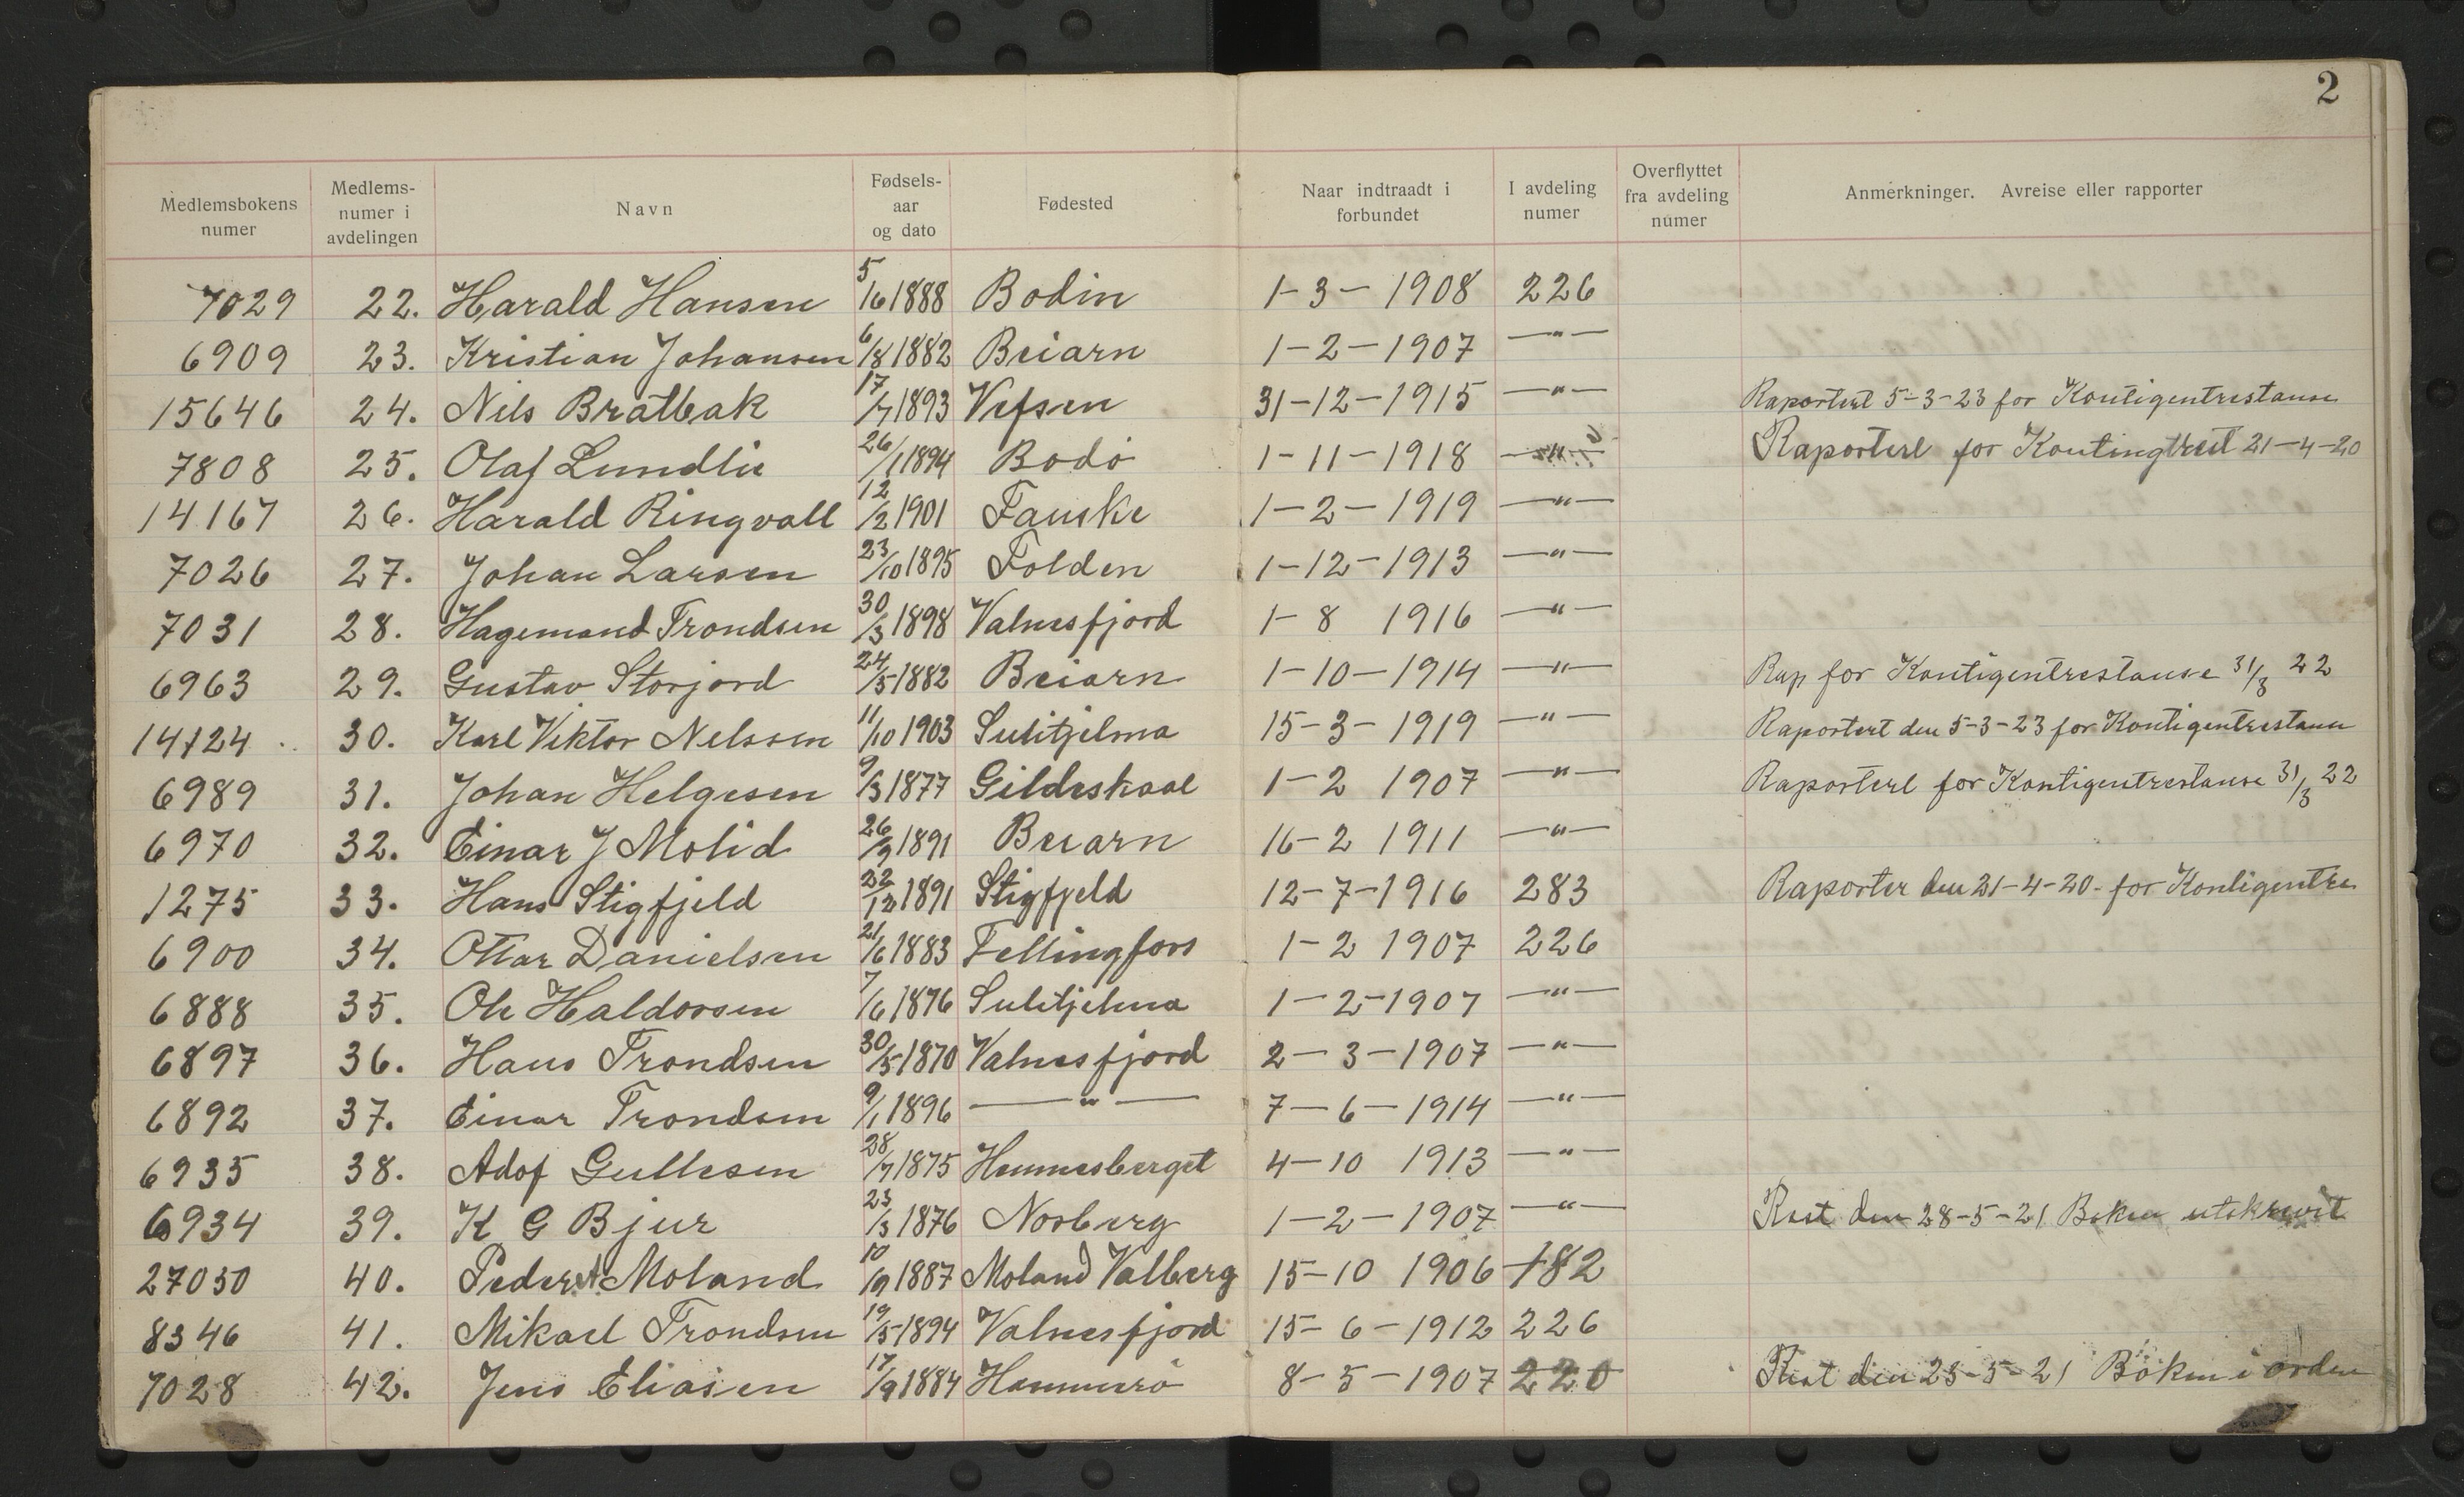 2
Medlemsbokens numer | Medlems- numer i avdelingen | Navn | Fødsels- aar og dato | Fødested | Naar indtraadt i forbundet | I avdeling numer | Overflyttet fra avdeling numer | Anmerkninger. Avreise eller rapporter
7029 22. Harald Hansen 5/6 1888 Bodin 1-3-1908 226
6909 23. Kristian Johansen 6/8 1882 Beiarn 1-2-1907 —"—
15646 24. Nils Bratbak 17/7 1893 Vefsen 31-12-1915 —"— Raportert 5-3-23 for Kontigentrestanse
7808 25. Olaf Lundlie 26/1 1894 Bodö 1-11-1918 —"— Raportert for 21-4-20
14167 26. Harald Ringvall 12/2 1901 Fauske 1-2-1919 —"—
7026 27. Johan Larsen 23/10 1895 Folden 1-12-1913 —"—
7031 28. Hagemand Trondsen 30/3 1898 Valnesfjord 1-8 1916 —"—
6963 29. Gustav Storjord 24/5 1882 Beiarn 1-10-1914 —"— Rap for Kontigentrestanse 31/3 22
14124 30. Karl Viktor Nelssen 11/10 1903 Sulitjelma 15-3-1919 —"— Raportert den 5-3-23 for Kontigentrestann
6989 31. Johan Helgesen 9/3 1877 Gildeskaal 1-2 1907 —"— Raportert for Kontigentrestanse 31/3 22
6970 32. Einar J Molid 26/9 1891 Beiarn 16-2 1911 —"—
1275 33. Hans Stigfjeld 22/12 1891 Stigfjeld 12-7-1916 283 Raporter den 21-4-20- for Kontigentre
6900 34. Ottar Danielsen 21/6 1883 Fellingfors 1-2 1907 226
6888 35. Ole Haldorsen 7/6 1876 Sulitjelma 1-2-1907 —"—
6897 36. Hans Trondsen 30/5 1870 Valnesfjord 2-3-1907 —"—
6892 37. Einar Trondsen 9/1 1896 —"— 7-6-1914 —"—
6935 38. Adof Gullesen 28/7 1875 Hemnesberget 4-10 1913 —"—
6934 39. K G Bjur 23/3 1876 Norberg 1-2-1907 —"— Reist den 28-5-21 Boken utskrevit
27050 40. Peder A Moland 10/9 1887 Moland Valberg 15-10 1906 182
8346 41. Mikael Trondsen 19/5 1894 Valnesfjord 15-6-1912 226
7028 42. Jens Eliasen 17/9 1884 Hammerö 8-5-1907 220 Reist den 25-5-21 Böken i orden